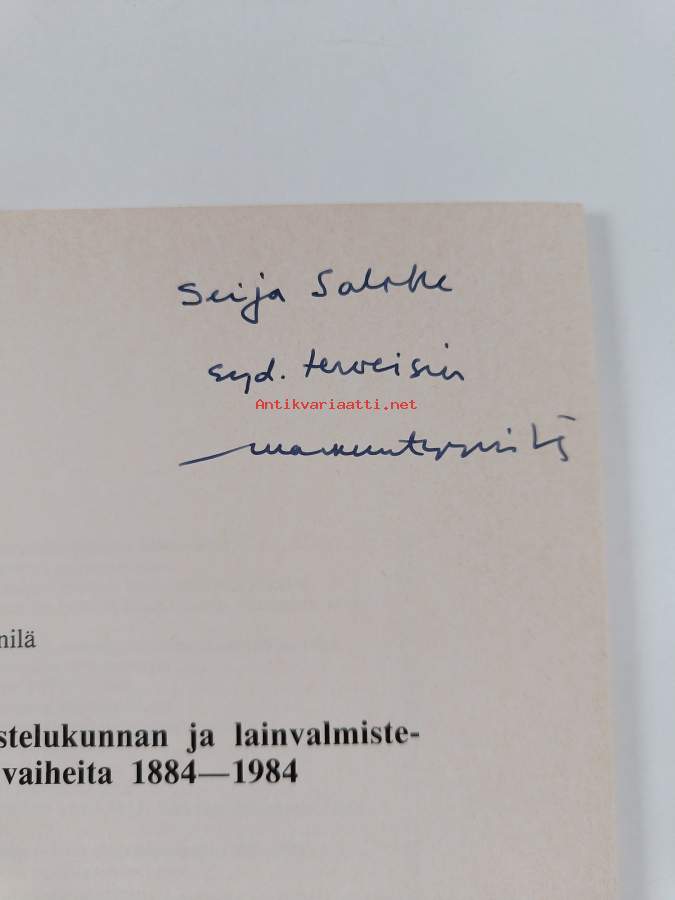 Seija
syd. terveisin
Antikvariaatti.net
nilä
stelukunnan ja lainvalmiste-
vaiheita 1884—1984